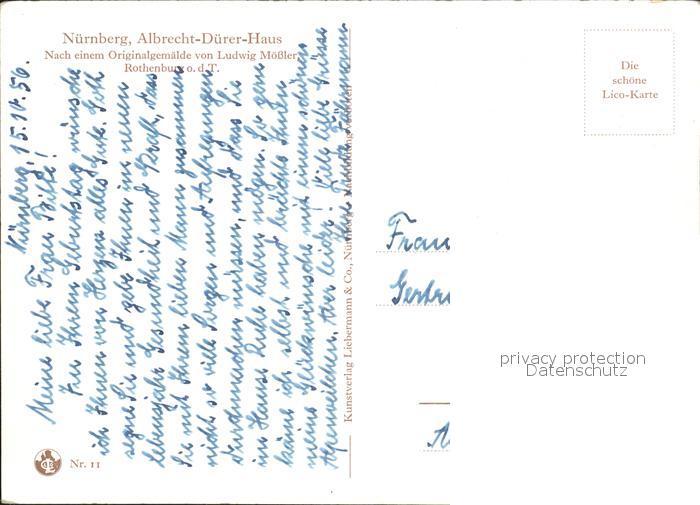 Nürnberg, Albrecht-Dürer-Haus
Nach einem Originalgemälde von Ludwig Mößler
Rothenburg o. d. T.
Nürnberg, 15.10.56.
Meine liebe Frau
Zu Ihrem Geburtstag wünsche
ich Ihnen von Herzen alles Gute. Gott
segne Sie und gebe Ihnen im neuen
Lebensjahr Gesundheit und Kraft, dass
Sie mit Ihrem lieben Mann zusammen
nicht so viele Sorgen und Aufregungen
durchmachen müssen, und dass Sie
im Hause Ruhe haben mögen. So gern
käme ich selbst und brächte Ihnen
meine Glückwünsche mit einem schönen
Alpenveilchen. Aber leider! Viele liebe Grüsse
Kunstverlag Liebermann & Co., Nürnberg
Nr. 11
Die
schöne
Lico-Karte
Frau
Gertru
privacy protection
Datenschutz